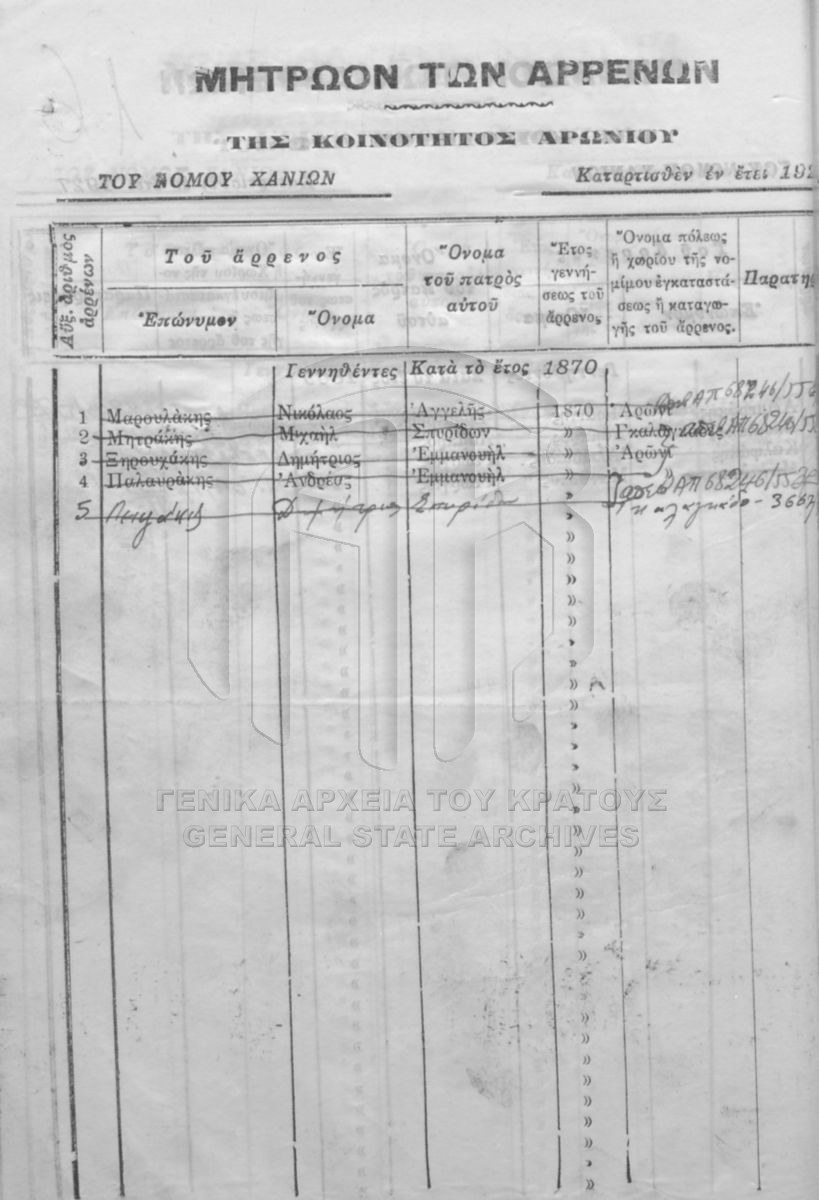 ΜΗΤΡΩΟΝ ΤΩΝ ΑΡΡΕΝΩΝ
ΤΗΣ ΚΟΙΝΟΤΗΤΟΣ ΑΡΩΝΙΟΥ
ΤΟΥ ΝΟΜΟΥ ΧΑΝΙΩΝ Καταρτισθὲν ἐν ἔτει 192
Αὔξ. ἀριθμος ἀρρένων
Τοῦ ἄρρενος
Ἐπώνυμον Ὄνομα
Ὄνομα
τοῦ πατρὸς
αὐτοῦ
Ἔτος
γεννή-
σεως τοῦ
ἄρρενος
Ὄνομα πόλεως
ἢ χωρίου τῆς νο-
μίμου ἐγκαταστά-
σεως ἢ καταγω-
γῆς τοῦ ἄρρενος.
Παρατη
Γεννηθέντες Κατὰ τὸ ἔτος 1870
1 Μαρουλάκης Νικόλαος Ἀγγελῆς 1870 Ἀρῶνι ΑΠ 68246/55
2 Μητράκης Μιχαὴλ Σπυρίδων » ΑΠ 68246/55
3 Ξηρουχάκης Δημήτριος Ἐμμανουὴλ » Ἀρῶνι
4 Παλαυράκης Ἀνδρέας Ἐμμανουὴλ » » ΑΠ 68246/55
5 Δημήτριος »
ΓΕΝΙΚΑ ΑΡΧΕΙΑ ΤΟΥ ΚΡΑΤΟΥΣ
GENERAL STATE ARCHIVES